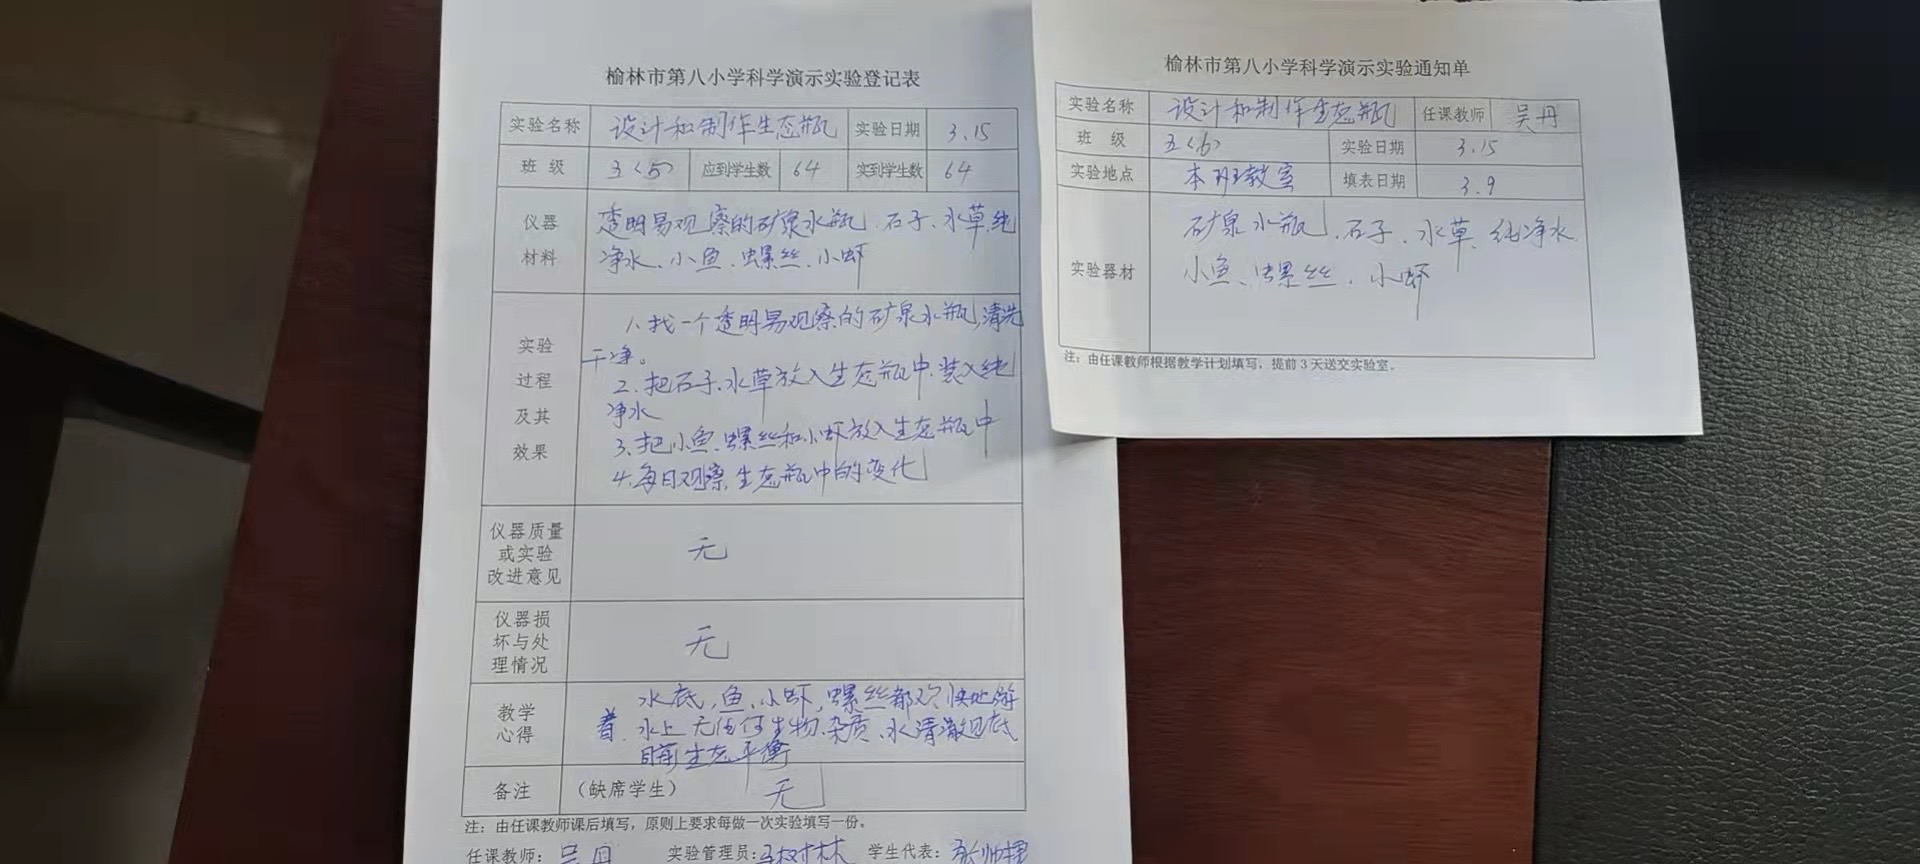 榆林市第八小学科学演示实验登记表
实验名称 设计和制作生态瓶 实验日期 3.15
班 级 3<5> 应到学生数 64 实到学生数 64
仪器
材料
透明易观察的矿泉水瓶、石子、水草、纯
净水、小鱼、螺丝、小虾
实验
过程
及其
效果
1、找一个透明易观察的矿泉水瓶,清洗
干净。
2、把石子、水草放入生态瓶中、装入纯
净水
3、把小鱼、螺丝和小虾放入生态瓶中
4、每日观察生态瓶中的变化
仪器质量
或实验
改进意见
无
仪器损
坏与处
理情况
无
教学
心得
水底,鱼、小虾,螺丝都欢快地游
着、水上无任何生物、杂质、水清澈见底
目前生态平衡
备注 (缺席学生) 无
注:由任课教师课后填写,原则上要求每做一次实验填写一份。
任课教师:吴丹 实验管理员: 树林 学生代表:
榆林市第八小学科学演示实验通知单
实验名称 设计和制作生态瓶 任课教师 吴丹
班 级 <6> 实验日期 3.15
实验地点 本班教室 填表日期 3.9
实验器材
矿泉水瓶、石子、水草、纯净水、
小鱼、螺丝、小虾
注:由任课教师根据教学计划填写,提前3天送交实验室。